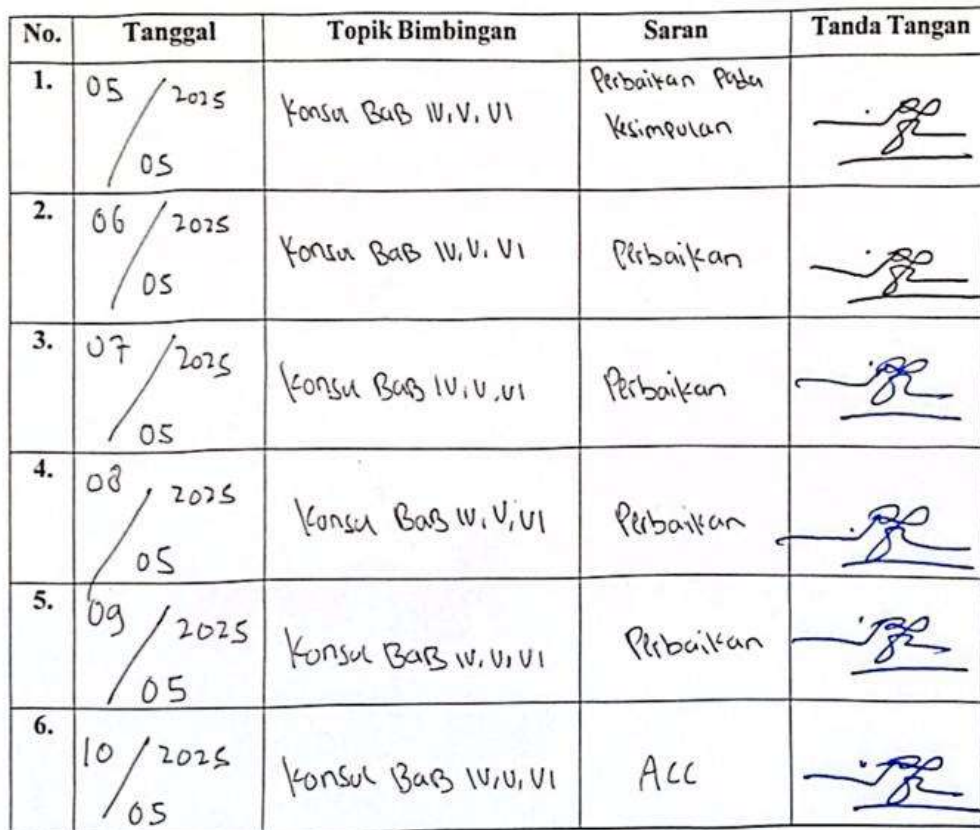 No. Tanggal Topik Bimbingan Saran Tanda Tangan
1. 05 / 2025 Konsul BaB IV, V, VI Perbaikan Pada
05 Kesimpulan
2. 06 / 2025 Konsul BaB IV, V, VI Perbaikan
05
3. 07 / 2025 Konsul BaB IV, V, VI Perbaikan
05
4. 08 / 2025 Konsul BaB IV, V, VI Perbaikan
05
5. 09 / 2025 Konsul BaB IV, V, VI Perbaikan
05
6. 10 / 2025 Konsul BaB IV, V, VI ACC
05